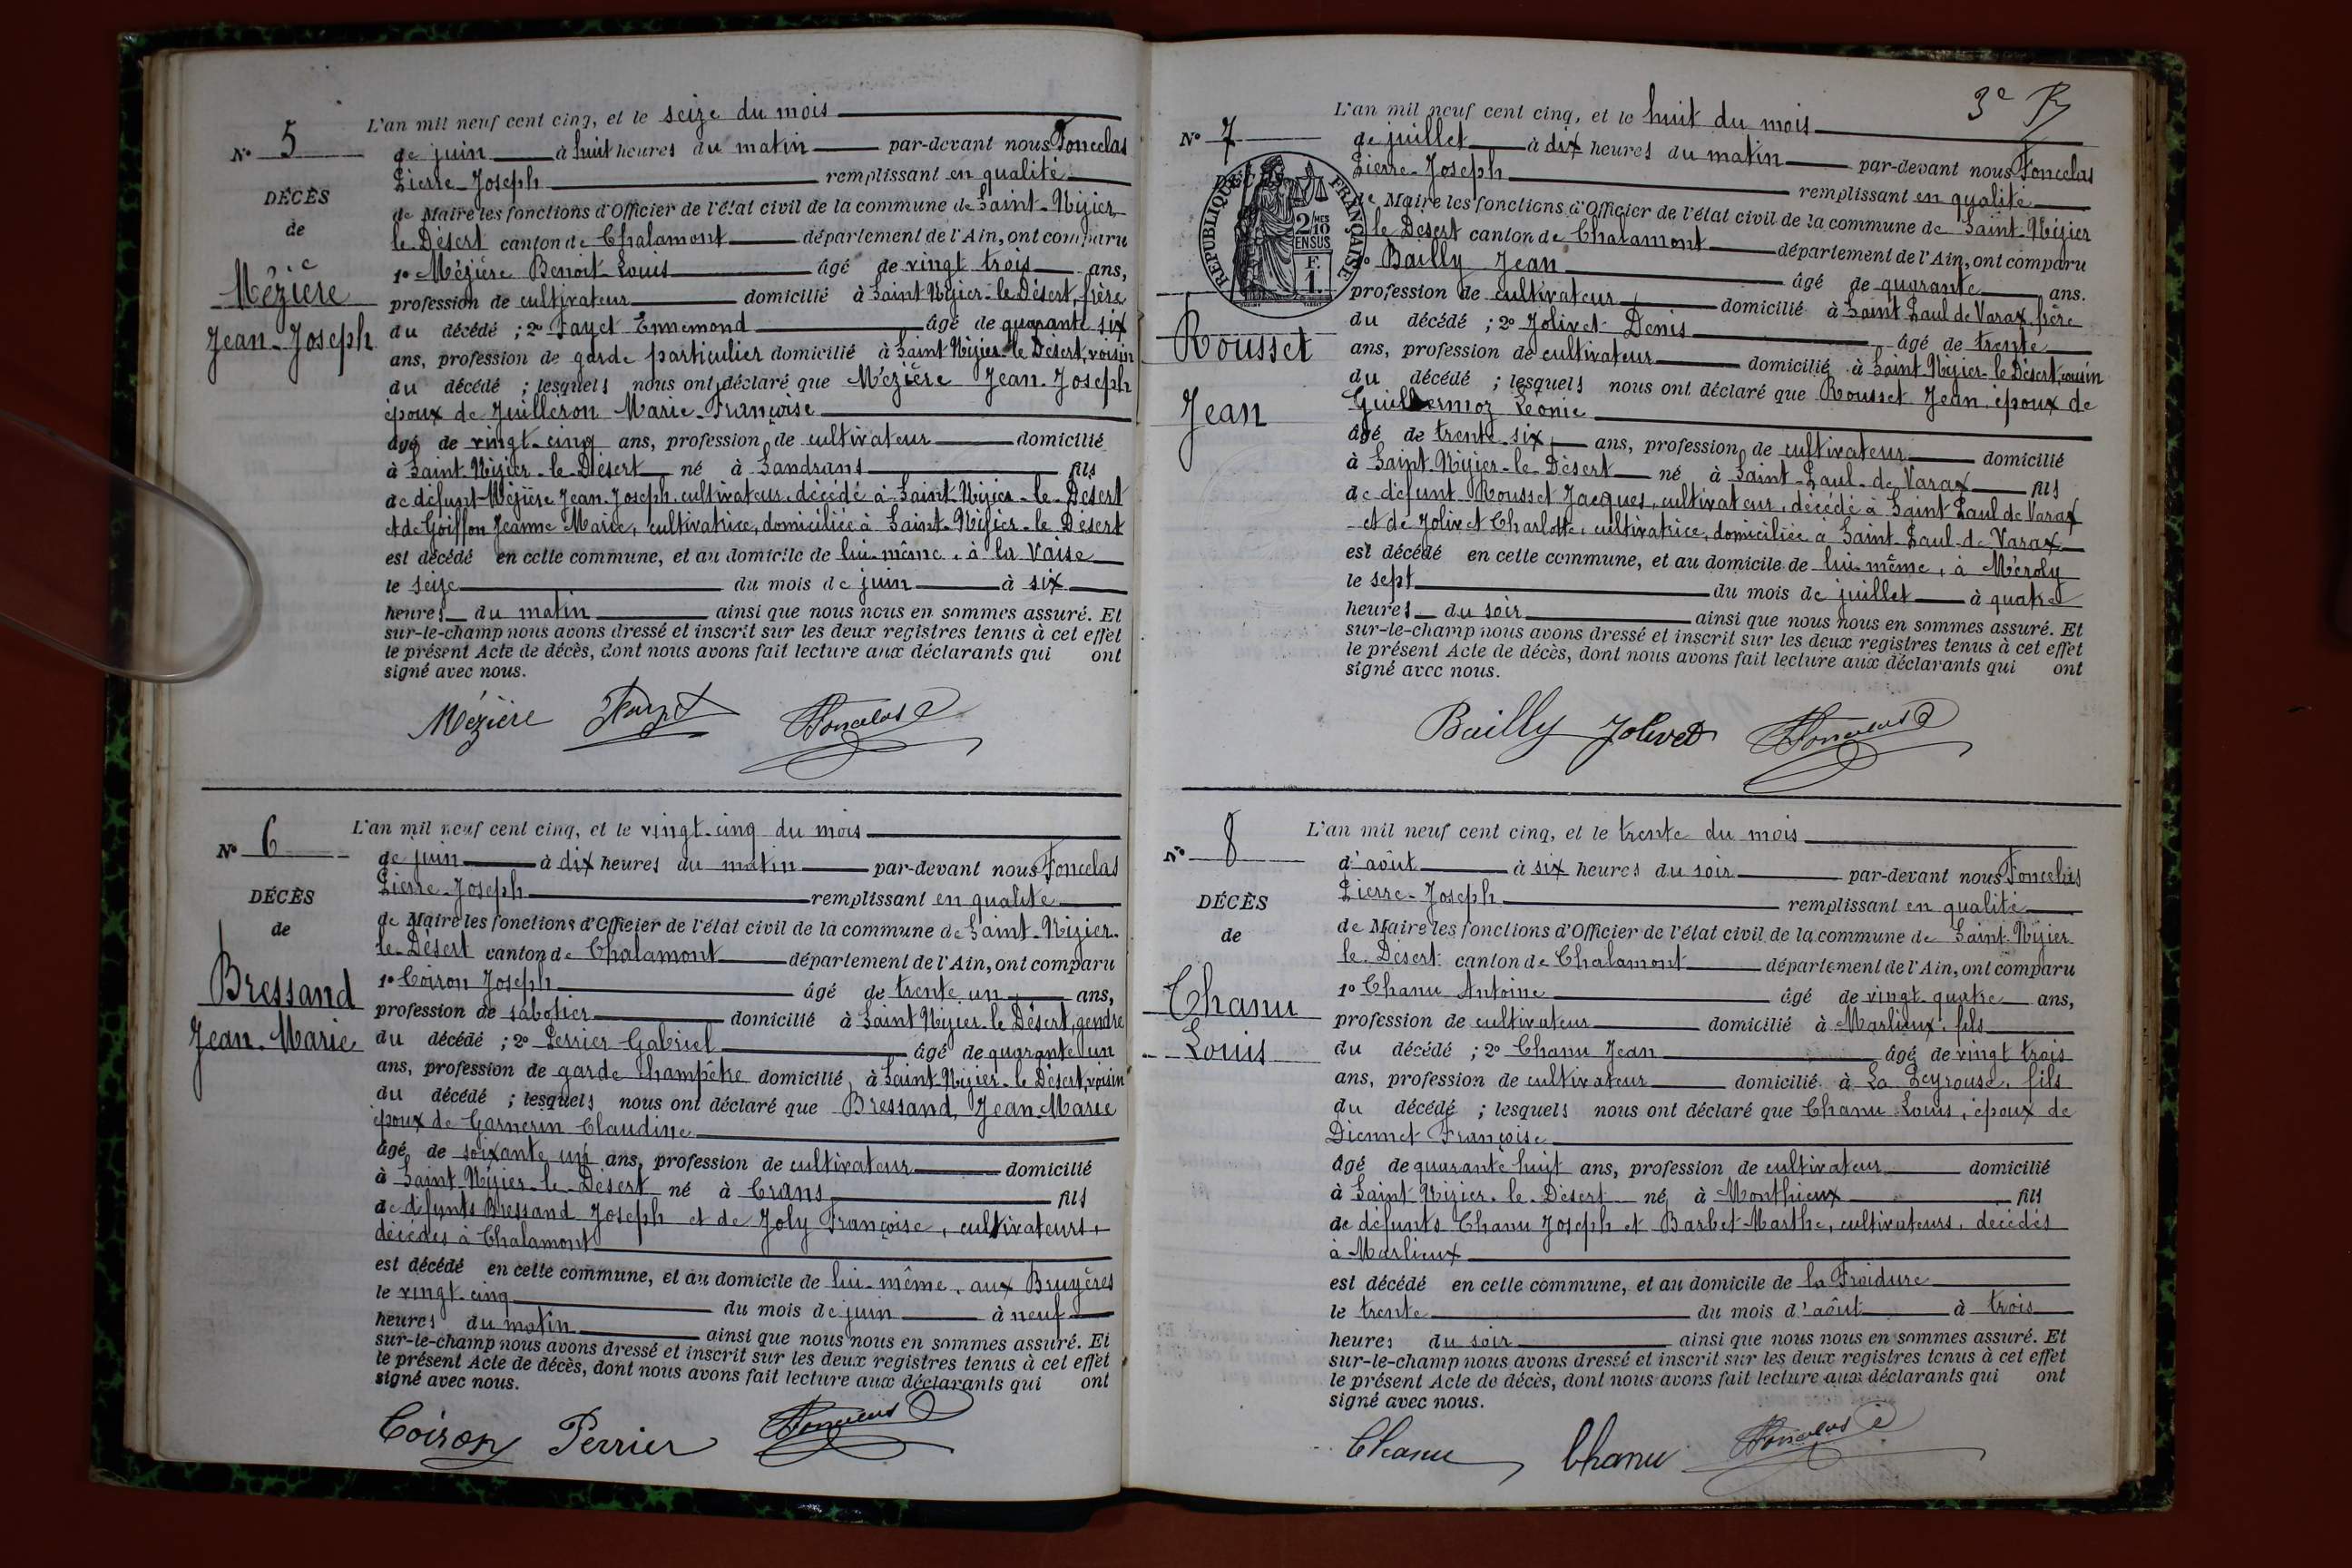 L'an mil neuf cent cinq, et le seize du mois
N° 5
de juin à huit heures du matin par-devant nous Foncelas
Pierre-Joseph remplissant en qualité
DÉCÈS
de Maire les fonctions d'Officier de l'état civil de la commune de Saint-Nizier-
de
le-Désert canton de Chalamont département de l'Ain, ont comparu
1° Mézière Benoit-Louis âgé de vingt trois ans,
Mézière
profession de cultivateur domicilié à Saint Nizier-le-Désert, frère
Jean-Joseph
du décédé ; 2° Fayet Ennemond âgé de quarante six
ans, profession de garde particulier domicilié à Saint Nizier-le Désert, voisin
du décédé ; lesquels nous ont déclaré que Mézière Jean-Joseph
époux de Juilleron Marie-Françoise
âgé de vingt-cinq ans, profession de cultivateur domicilié
à Saint-Nizier-le-Désert né à Sandrans fils
de défunt Mézière Jean-Joseph, cultivateur, décédé à Saint-Nizier-le-Désert
et de Goiffon Jeanne Marie, cultivatrice, domiciliée à Saint-Nizier-le Désert
est décédé en cette commune, et au domicile de lui-même, à la Vaise
le seize du mois de juin à six
heures du matin ainsi que nous nous en sommes assuré. Et
sur-le-champ nous avons dressé et inscrit sur les deux registres tenus à cet effet
le présent Acte de décès, dont nous avons fait lecture aux déclarants qui ont
signé avec nous.
Mézière Fayet Foncelas
L'an mil neuf cent cinq, et le vingt-cinq du mois
N° 6
de juin à dix heures du matin par-devant nous Foncelas
Pierre-Joseph remplissant en qualité
DÉCÈS
de Maire les fonctions d'Officier de l'état civil de la commune de Saint-Nizier-
de
le-Désert canton de Chalamont département de l'Ain, ont comparu
1° Coiron Joseph âgé de trente un ans,
Bressand
profession de sabotier domicilié à Saint Nizier-le Désert, gendre
Jean-Marie
du décédé ; 2° Perrier Gabriel âgé de quarante un
ans, profession de garde champêtre domicilié à Saint-Nizier-le Désert, voisin
du décédé ; lesquels nous ont déclaré que Bressand, Jean-Marie
époux de Garnerin Claudine
âgé de soixante un ans, profession de cultivateur domicilié
à Saint-Nizier-le-Désert né à Crans fils
de défunts Bressand Joseph et de Joly Françoise, cultivateurs,
décédés à Chalamont
est décédé en cette commune, et au domicile de lui-même, aux Bruyères
le vingt-cinq du mois de juin à neuf
heures du matin ainsi que nous nous en sommes assuré. Et
sur-le-champ nous avons dressé et inscrit sur les deux registres tenus à cet effet
le présent Acte de décès, dont nous avons fait lecture aux déclarants qui ont
signé avec nous.
Coiron Perrier Foncelas
3e
L'an mil neuf cent cinq, et le huit du mois
N° 7
de juillet à dix heures du matin par-devant nous Foncelas
Pierre-Joseph remplissant en qualité
RÉPUBLIQUE FRANÇAISE
2/10 MES
EN SUS
F.
1.
de Maire les fonctions d'Officier de l'état civil de la commune de Saint-Nizier
le Désert canton de Chalamont département de l'Ain, ont comparu
1° Bailly Jean âgé de quarante ans.
profession de cultivateur domicilié à Saint Paul de Varax, frère
Rousset
du décédé ; 2° Jolivet Denis âgé de trente
ans, profession de cultivateur domicilié à Saint-Nizier-le Désert, cousin
du décédé ; lesquels nous ont déclaré que Rousset Jean, époux de
Jean
Guillermoz Léonie
âgé de trente-six ans, profession de cultivateur domicilié
à Saint-Nizier-le-Désert né à Saint-Paul-de Varax fils
de défunt Rousset Jacques, cultivateur, décédé à Saint Paul de Varax
et de Jolivet Charlotte, cultivatrice, domiciliée à Saint-Paul-de Varax
est décédé en cette commune, et au domicile de lui-même, à Méroly
le sept du mois de juillet à quatre
heures du soir ainsi que nous nous en sommes assuré. Et
sur-le-champ nous avons dressé et inscrit sur les deux registres tenus à cet effet
le présent Acte de décès, dont nous avons fait lecture aux déclarants qui ont
signé avec nous.
Bailly Jolivet Foncelas
L'an mil neuf cent cinq, et le trente du mois
N° 8
d'août à six heures du soir par-devant nous Foncelas
Pierre-Joseph remplissant en qualité
DÉCÈS
de Maire les fonctions d'Officier de l'état civil de la commune de Saint-Nizier
de
le-Désert canton de Chalamont département de l'Ain, ont comparu
1° Chanu Antoine âgé de vingt-quatre ans,
Chanu
profession de cultivateur domicilié à Marlieux, fils
Louis
du décédé ; 2° Chanu Jean âgé de vingt trois
ans, profession de cultivateur domicilié à La Peyrouse, fils
du décédé ; lesquels nous ont déclaré que Chanu Louis, époux de
Diennet Françoise
âgé de quarante huit ans, profession de cultivateur domicilié
à Saint-Nizier-le-Désert né à Monthieux fils
de défunts Chanu Joseph et Barbet Marthe, cultivateurs, décédés
à Marlieux
est décédé en cette commune, et au domicile de la Froidure
le trente du mois d'août à trois
heures du soir ainsi que nous nous en sommes assuré. Et
sur-le-champ nous avons dressé et inscrit sur les deux registres tenus à cet effet
le présent Acte de décès, dont nous avons fait lecture aux déclarants qui ont
signé avec nous.
Chanu Chanu Foncelas